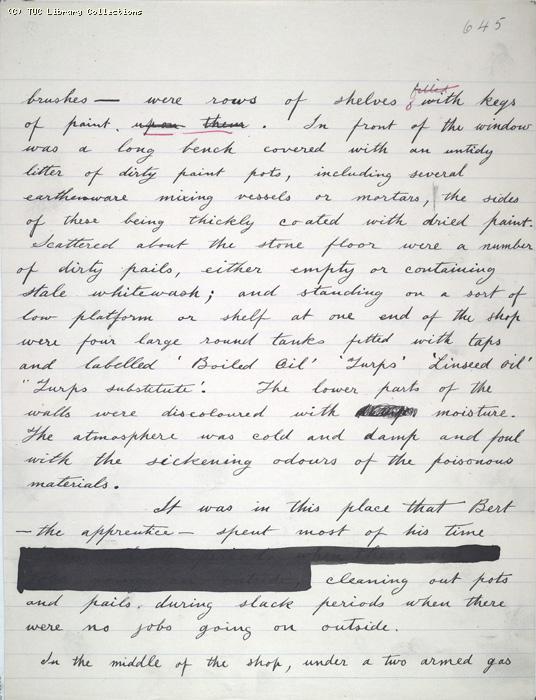 (C) TUC Library Collections
645
filled
brushes — were rows of shelves with kegs
of paint. upon them. In front of the window
was a long bench covered with an untidy
litter of dirty paint pots, including several
earthenware mixing vessels or mortars, the sides
of these being thickly coated with dried paint.
Scattered about the stone floor were a number
of dirty pails, either empty or containing
stale whitewash; and standing on a sort of
low platform or shelf at one end of the shop
were four large round tanks fitted with taps
and labelled 'Boiled Oil' 'Turps' 'Linseed Oil'
"Turps substitute'. The lower parts of the
walls were discoloured with moisture.
The atmosphere was cold and damp and foul
with the sickening odours of the poisonous
materials.
It was in this place that Bert
— the apprentice — spent most of his time
when there were
outside, cleaning out pots
and pails. during slack periods when there
were no jobs going on outside.
In the middle of the shop, under a two armed gas